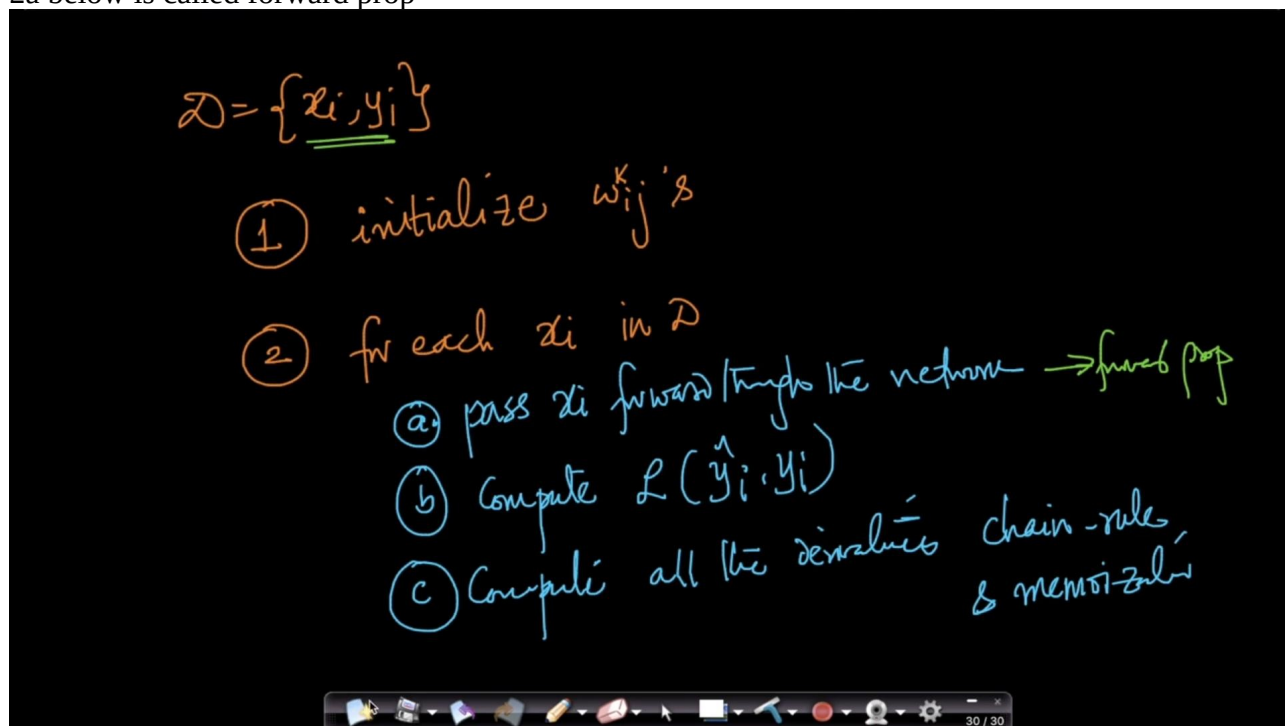 2a below is called forward prop
D = {xi, yi}
1 initialize wᵏij's
2 for each xi in D
a. pass xi forward through the network → forward prop
b Compute L(ŷi, yi)
c Compute all the derivatives chain-rule
& memoization
30 / 30